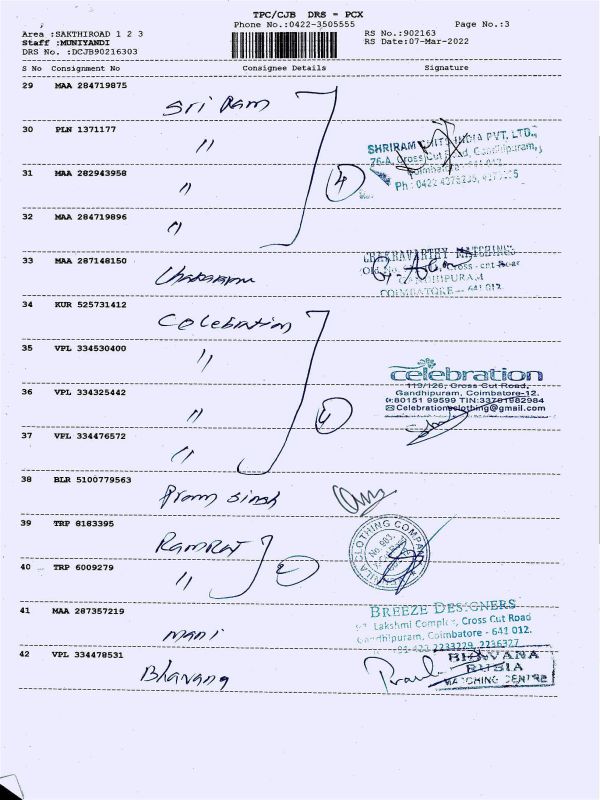 TPC/CJB DRS - PCX
Phone No.:0422-3505555
Page No.:3
Area :SAKTHIROAD 1 2 3
Staff :MUNIYANDI
DRS No. :DCJB90216303
RS No.:902163
RS Date:07-Mar-2022
S No Consignment No Consignee Details Signature
29 MAA 284719875
Sri Ram
30 PLN 1371177
"
31 MAA 282943958
"
4
32 MAA 284719896
"
SHRIRAM CHITS INDIA PVT. LTD.,
76-A, Cross Cut Road, Gandhipuram,
Coimbatore - 641 012.
33 MAA 287148150
CHAKRAVARTHY MATCHINGS
Cross - cut Roar
GANDHIPURAM
COIMBATORE - 641 012.
34 KUR 525731412
Celebration
35 VPL 334530400
"
36 VPL 334325442
"
4
37 VPL 334476572
"
celebration
119/126, Cross Cut Road,
Gandhipuram, Coimbatore-12.
80151 99599 TIN:33781982984
Celebrationsclothing@gmail.com
38 BLR 5100779563
Prem Singh
39 TRP 8183395
RamRaj
40 TRP 6009279
"
2
CLOTHING COMPANY
41 MAA 287357219
mani
BREEZE DESIGNERS
Lakshmi Complex, Cross Cut Road
Gandhipuram, Coimbatore - 641 012.
2233229, 2236327
42 VPL 334478531
Bhavana
MATCHING CENTRE